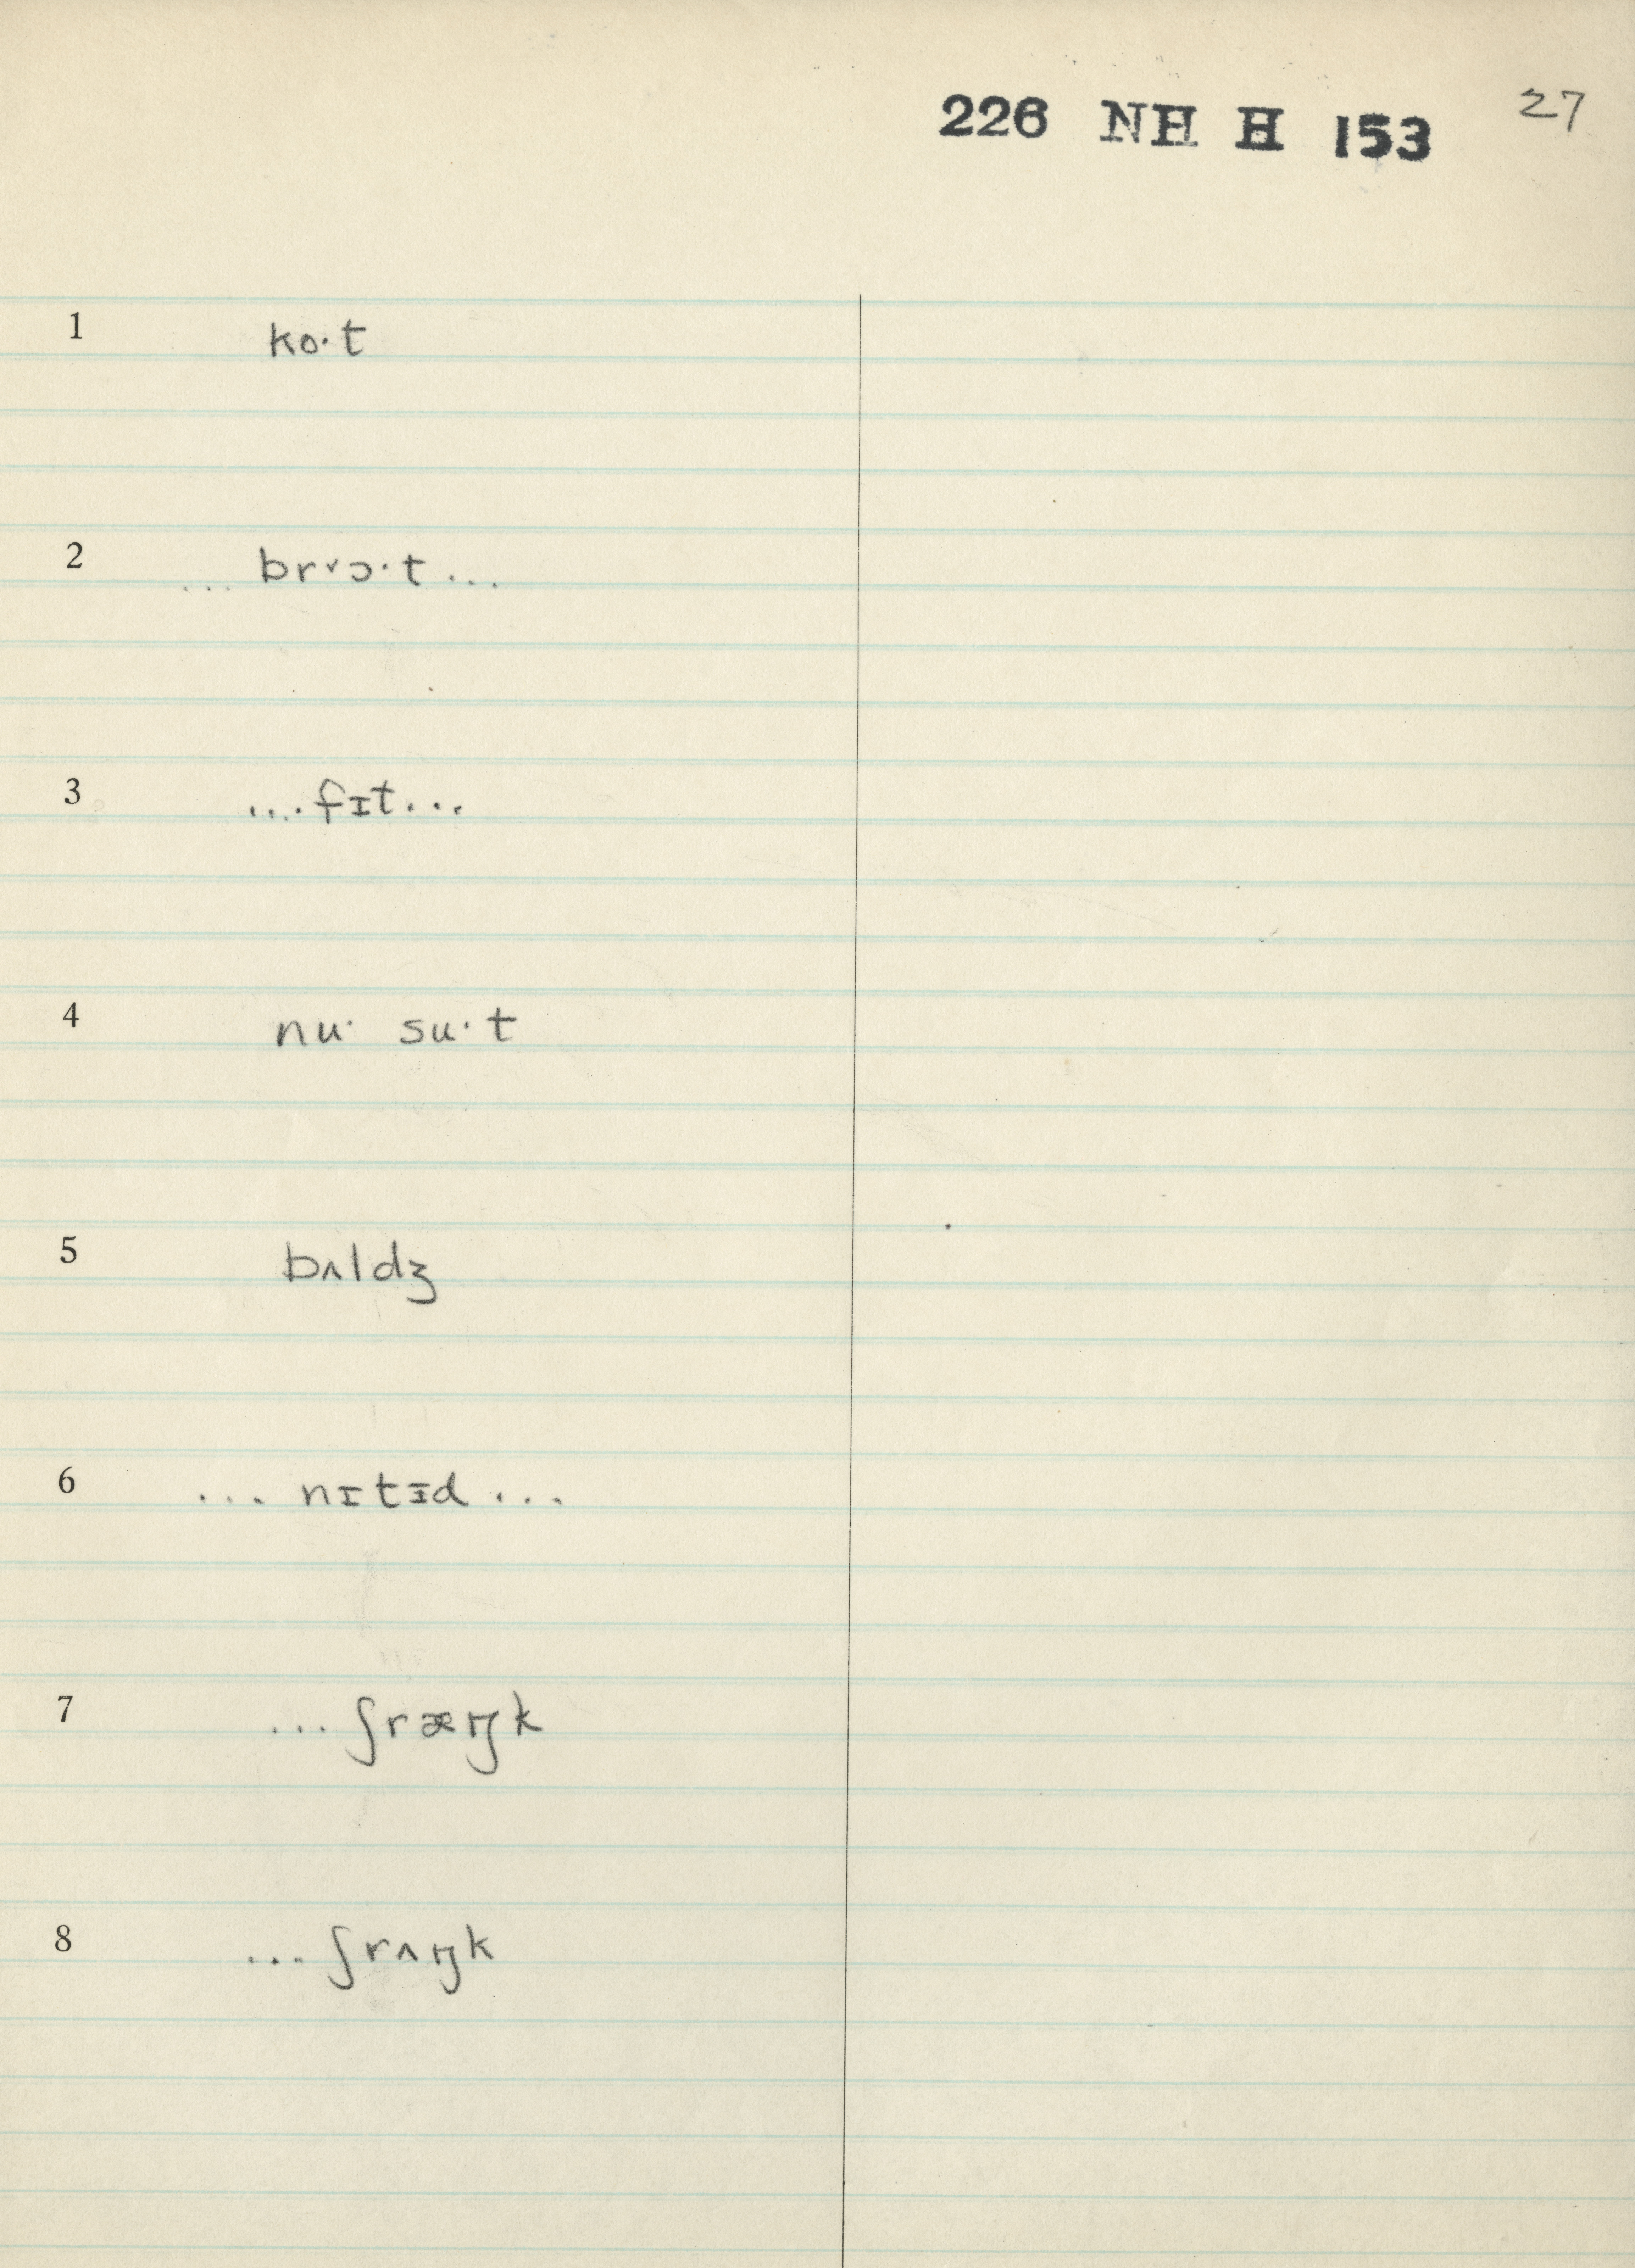 226 NH H 153 27
1 ko·t
2 ... brᵛɔ·t ...
3 ....fɪt...
4 nu· su·t
5 bʌldʒ
6 ... nɪtɪ̵d ...
7 ... ʃræŋk
8 ... ʃrʌŋk